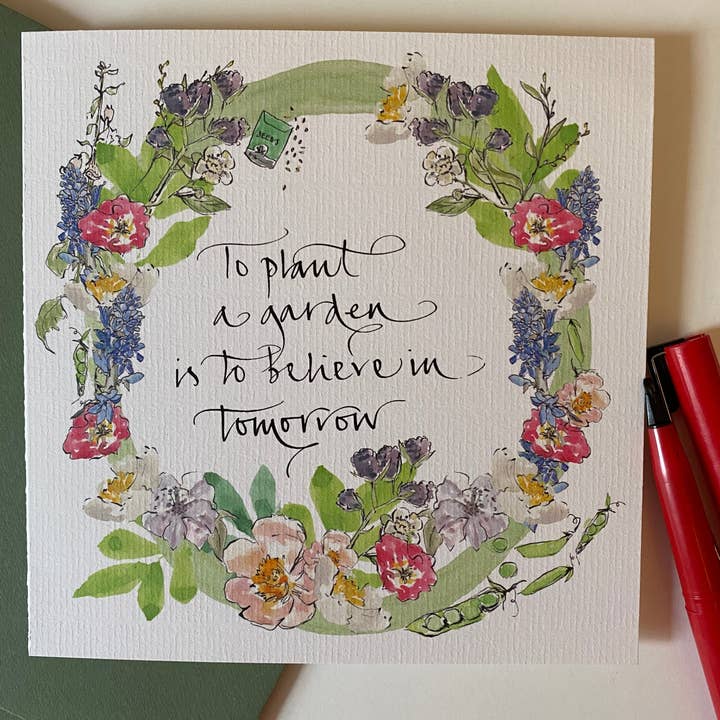 SEEDS
To plant
a garden
is to believe in
tomorrow